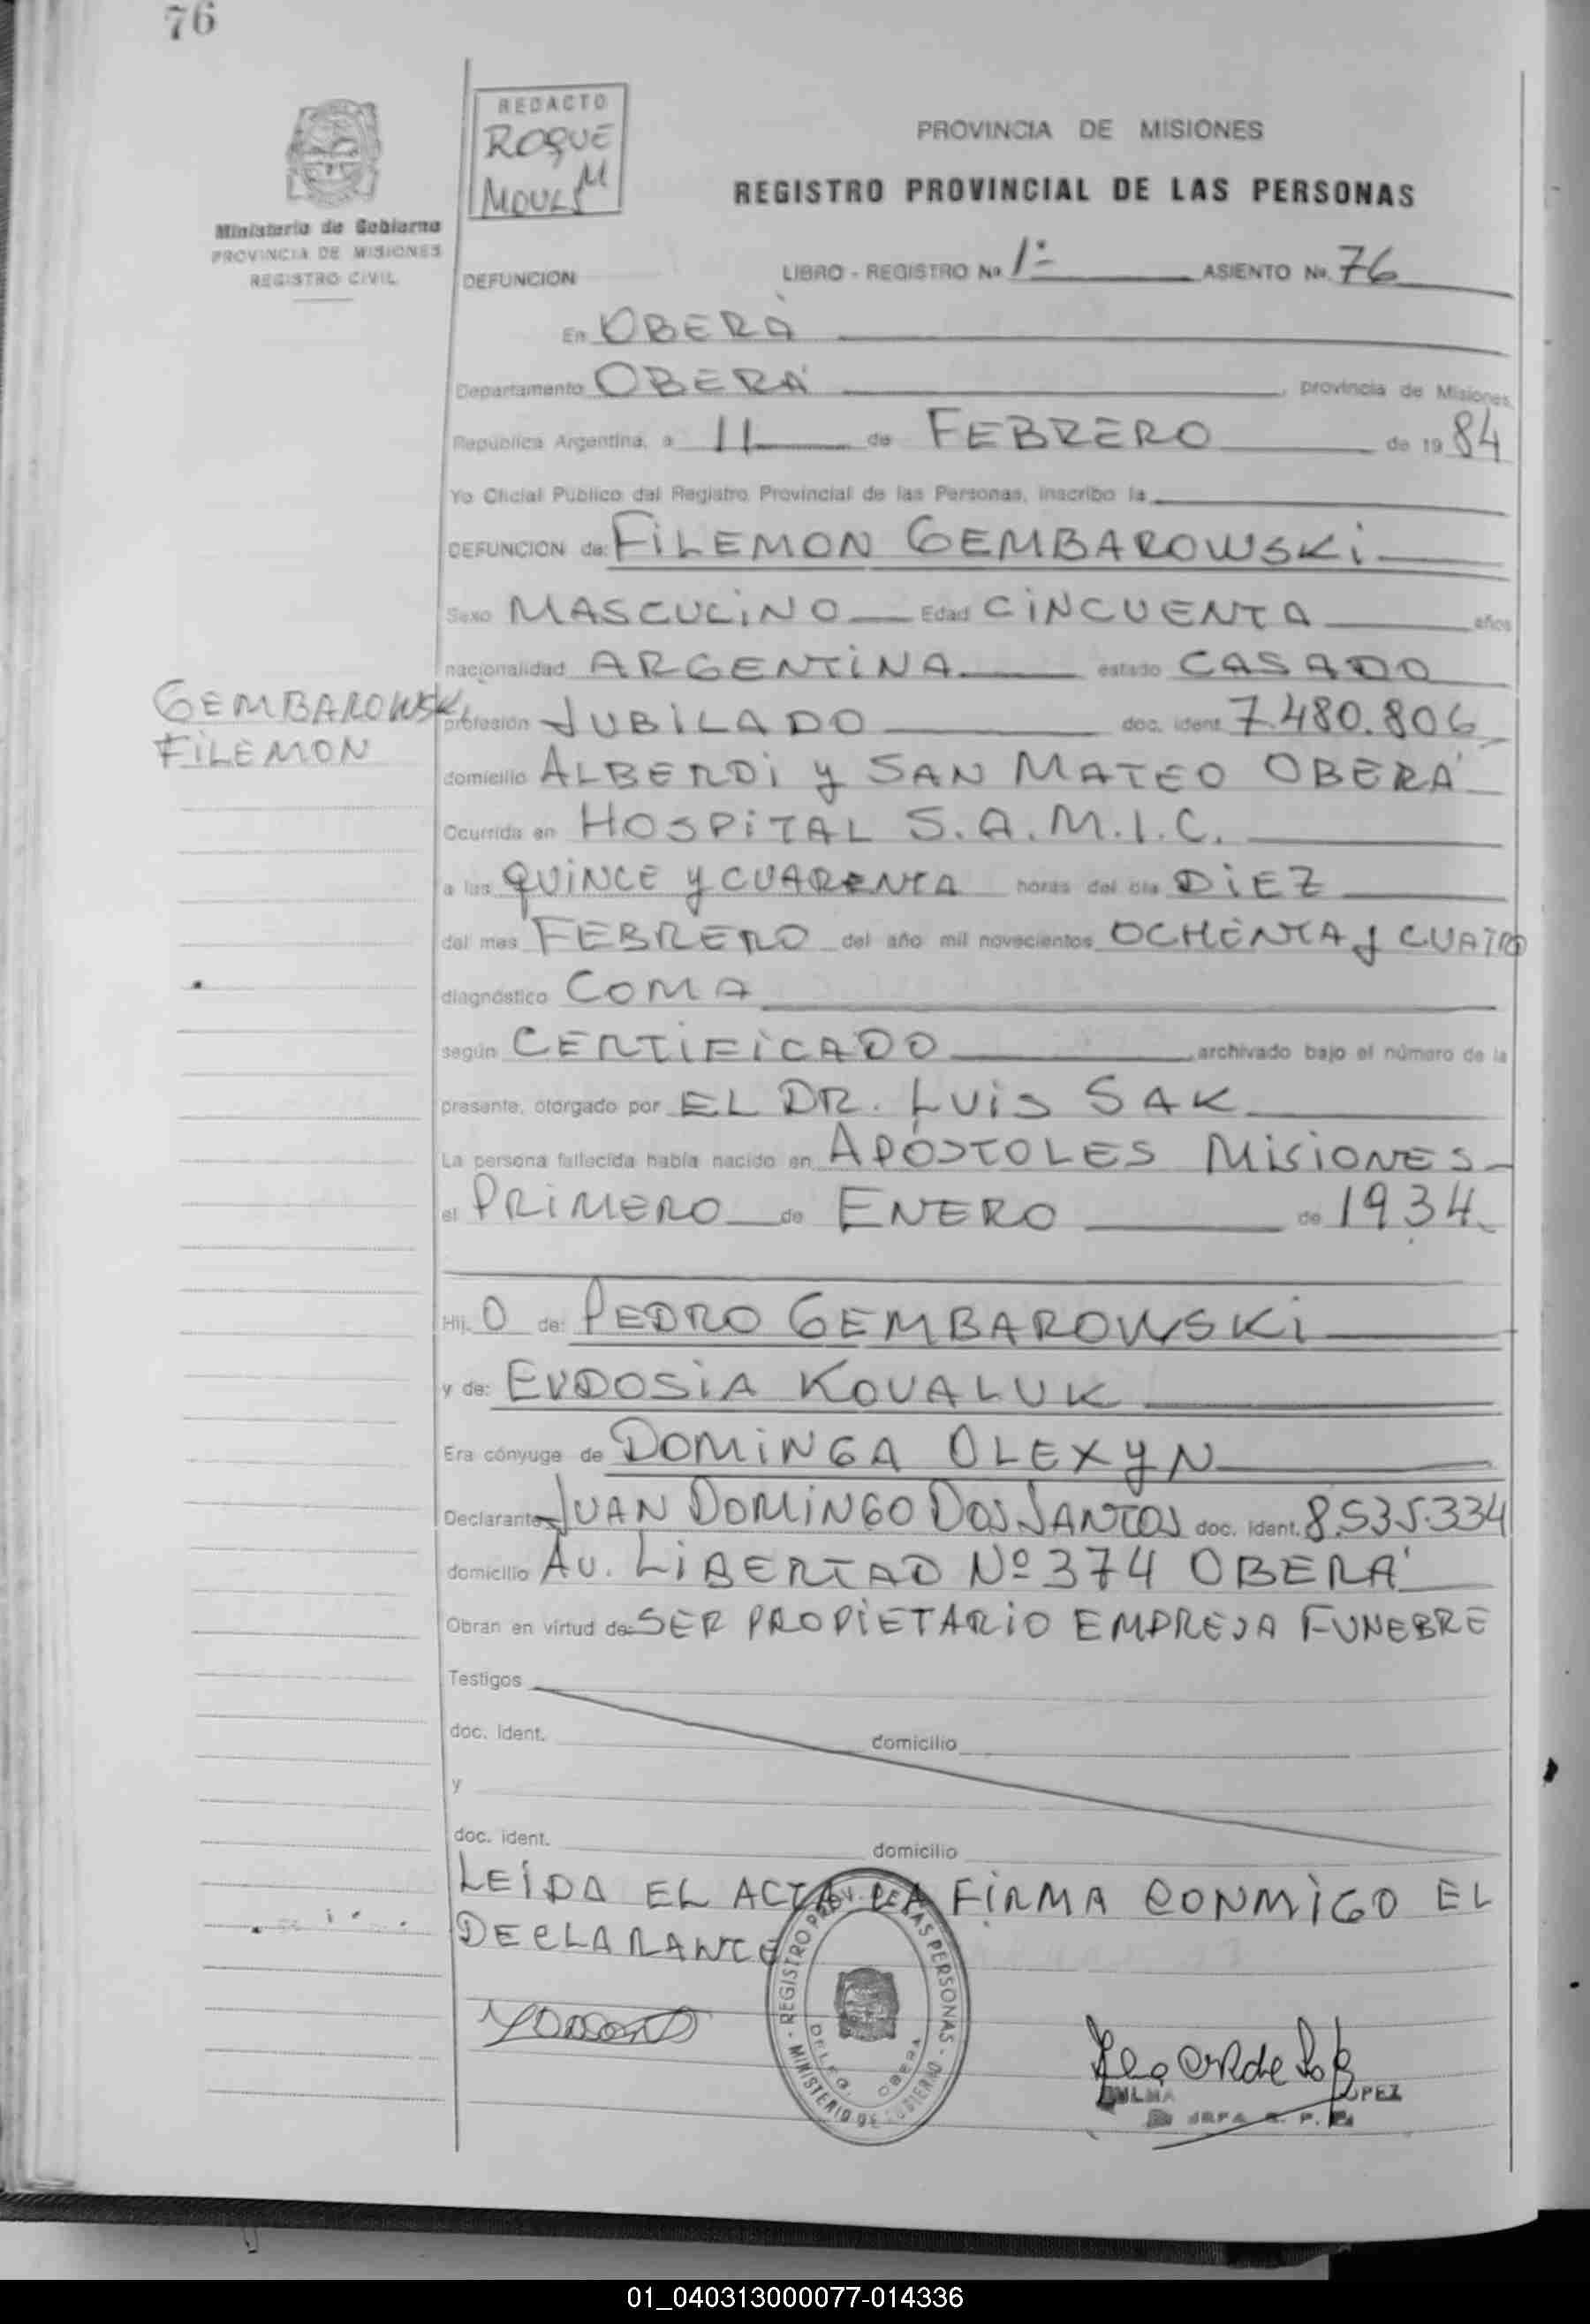 76
REDACTO
ROQUE
M
Ministerio de Gobierno
PROVINCIA DE MISIONES
REGISTRO CIVIL
PROVINCIA DE MISIONES
REGISTRO PROVINCIAL DE LAS PERSONAS
DEFUNCION LIBRO - REGISTRO No. 1º ASIENTO No. 76
En OBERÁ
Departamento OBERÁ, provincia de Misiones,
República Argentina, a 11 de FEBRERO de 1984
Yo Oficial Público del Registro Provincial de las Personas, inscribo la
DEFUNCION de: FILEMON GEMBAROWSKI
Sexo MASCULINO Edad CINCUENTA años
nacionalidad ARGENTINA estado CASADO
GEMBAROWSKI
FILEMON
profesión JUBILADO doc. ident. 7.480.806
domicilio ALBERDI y SAN MATEO OBERÁ
Ocurrida en HOSPITAL S.A.M.I.C.
a las QUINCE y CUARENTA horas del día DIEZ
del mes FEBRERO del año mil novecientos OCHENTA y CUATRO
diagnóstico COMA
según CERTIFICADO archivado bajo el número de la
presente, otorgado por EL DR. LUIS SAK
La persona fallecida había nacido en APÓSTOLES MISIONES
el PRIMERO de ENERO de 1934.
Hij O de: PEDRO GEMBAROWSKI
y de: EUDOSIA KOVALUK
Era cónyuge de DOMINGA OLEXYN
Declarante JUAN DOMINGO DOS SANTOS doc. ident. 8.535.334
domicilio AV. LIBERTAD Nº 374 OBERÁ
Obran en virtud de: SER PROPIETARIO EMPRESA FUNEBRE
Testigos
doc. ident. domicilio
y
doc. ident. domicilio
LEIDA EL ACTA LA FIRMA CONMIGO EL
DECLARANTE
REGISTRO PROV. DE LAS PERSONAS
MINISTERIO DE GOBIERNO
DELEG. OBERA
01_040313000077-014336